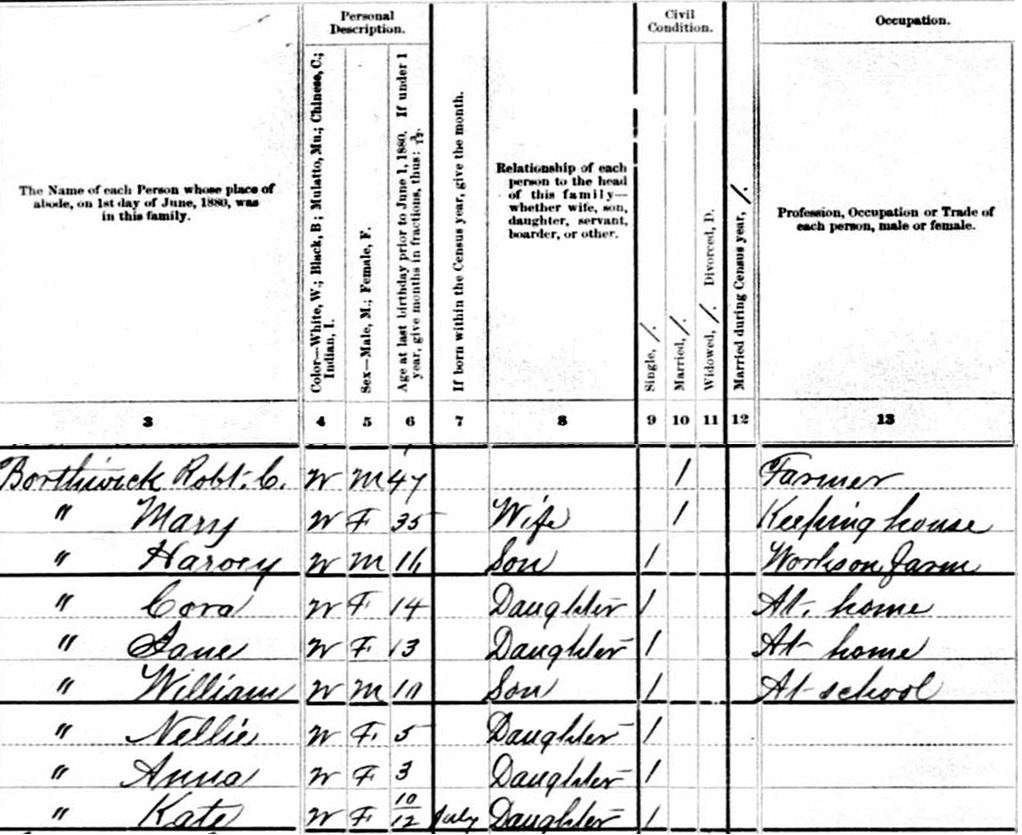 Personal Description. Civil Condition. Occupation.
The Name of each Person whose place of abode, on 1st day of June, 1880, was in this family.
Color—White, W.; Black, B; Mulatto, Mu.; Chinese, C.; Indian, I.
Sex—Male, M.; Female, F.
Age at last birthday prior to June 1, 1880. If under 1 year, give months in fractions, thus: 3/12.
If born within the Census year, give the month.
Relationship of each person to the head of this family—whether wife, son, daughter, servant, boarder, or other.
Single, /.
Married, /.
Widowed, /. Divorced, D.
Married during Census year, /.
Profession, Occupation or Trade of each person, male or female.
3 4 5 6 7 8 9 10 11 12 13
Borthwick Robt. C. W M 47 1 Farmer
" Mary W F 35 Wife 1 Keeping house
" Harvey W M 16 Son 1 Works on farm
" Cora W F 14 Daughter 1 At home
" Jane W F 13 Daughter 1 At home
" William W M Son 1 At school
" Nellie W F. 5 Daughter 1
" Anna W F 3 Daughter 1
" Kate W F 10/12 July Daughter 1